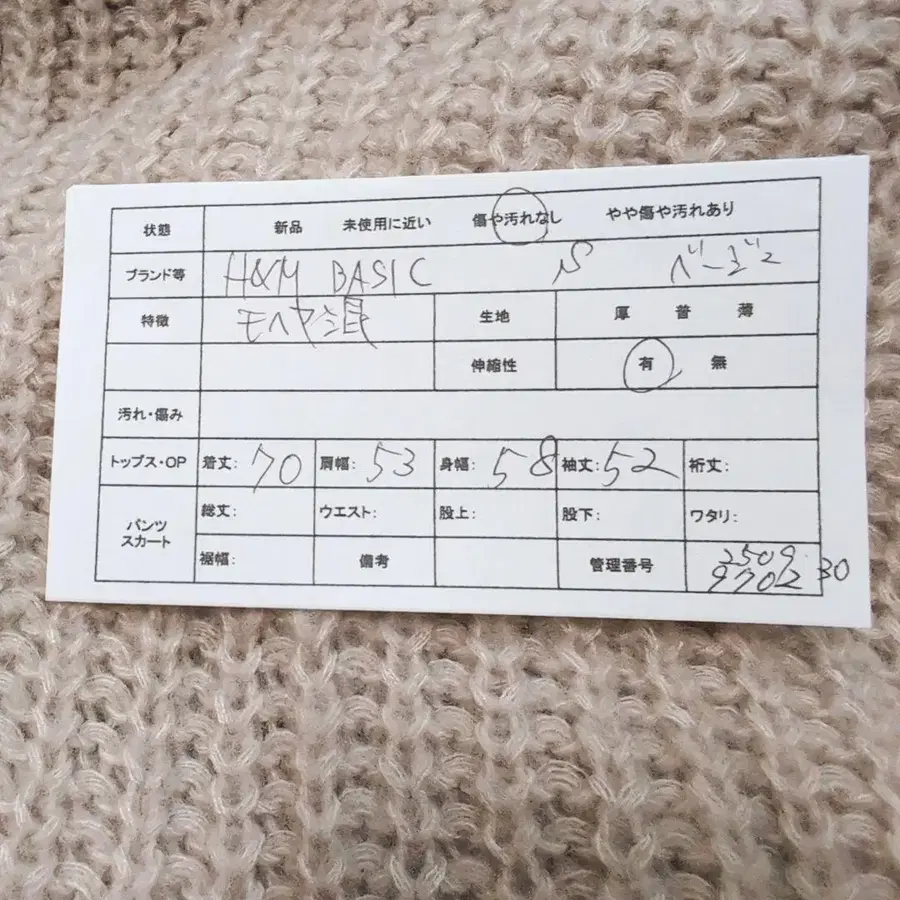 状態 新品 未使用に近い 傷や汚れなし やや傷や汚れあり
ブランド等 H&M BASIC S ベージュ
特徴 モヘヤ混 生地 厚 普 薄
伸縮性 有 無
汚れ・傷み
トップス・OP 着丈: 70 肩幅: 53 身幅: 58 袖丈: 52 裄丈:
パンツ スカート 総丈: ウエスト: 股上: 股下: ワタリ:
裾幅: 備考 管理番号 2509
9702 30